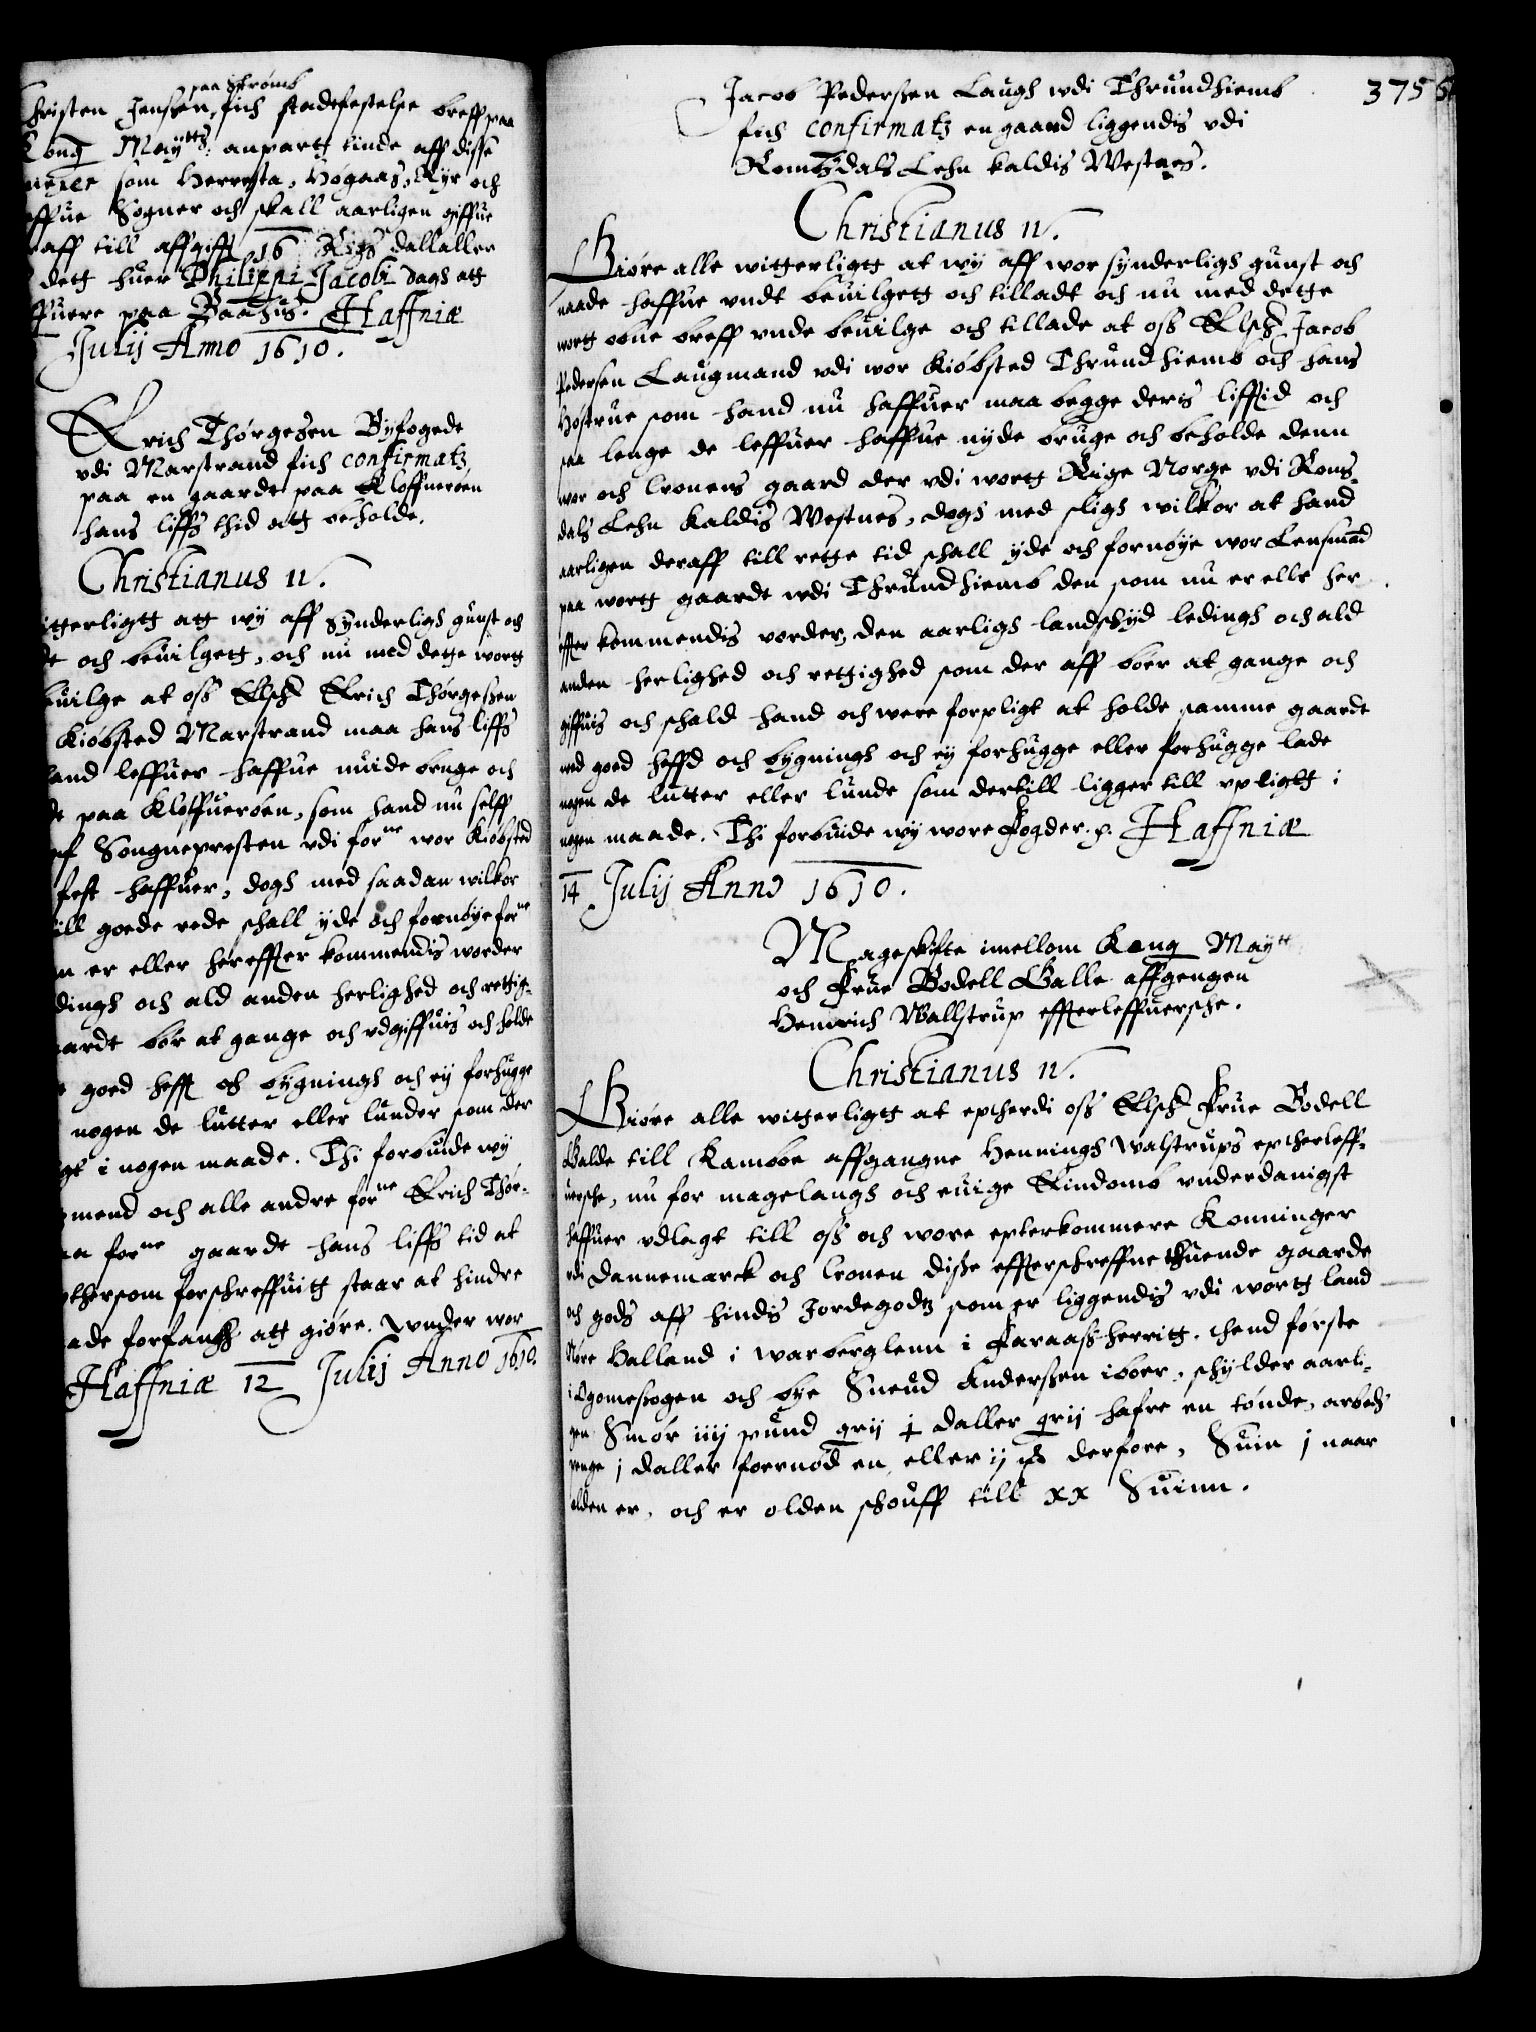 paa Strømb
Christen Jensen, fich stadsfestelse breff paa
Kong Maytts: anpartt tinde aff disse
som Herresta, Høgaas, Ryr och
effue Sogner och skall aarligen giffue
raff till affgifft 16 Rigs dallaller
dett huer Philippi Jacobi dags att
ffuere paa Baahus. Haffniæ
Julij Anno 1610.
Erich Thørgesen Byfogede
vdi Marstrand fich confirmatz
paa en gaarde paa Kloffueroen
hans liffs thid att beholde.
Christianus 4.
itterligtt att wy aff synderligh gunst och
dt och beuilgett, och nu med dette wortt
euilge at oss Elsch Erich Thørgesen
Kiøbsted Marstrand maa hans liffs
hand leffuer haffue niude bruge och
de paa Kloffuerøen, som hand nu selff
aff Sougnepresten vdi forne wor Kiøbsted
fest haffuer, dogh med saadan wilkor
till goede rede schall yde och fornøye forne
en er eller hereffter kommendis worder
dingh och ald anden herlighed och rettig-
aarde bør at gange och vdgiffuis och holde
goed hefft och bygningh och ey forhugge
nogen de lutter eller lunder som der
gt i nogen maade. Thi forbuide wy
mend och alle andre forne Erich Thør-
aa forne gaarde hans liffs tid at
thersom forschreffuitt staar at hindre
ade forfanch att giøre. Wnder wor
Haffniæ 12 Julij Anno 1610.
375
Jacob Pedersen Laugh wdi Thrundhiemb
fich confirmatz en gaard liggendis vdi
Romtzdals Lehn kaldis Westnes.
Christianus 4.
Giøre alle witterligtt at wy aff wor synderligh gunst och
naade haffue vndt beuilgett och tilladt och nu med dette
wortt obne breff vnde beuilge och tillade at oss Elsch Jacob
Pedersen Laugmand vdi wor Kiøbsted Thrundhiemb och hans
Høstrue som hand nu haffuer maa begge deris lifftid och
saa lenge de leffuer haffue nyde bruge och beholde denn
wor och Cronens gaard der vdi wortt Rige Norge vdi Roms-
dals Lehn kaldis Westnes, dogh med sligh wilkor at hand
aarligen deraff till rette tid schall yde och fornøye wor Lensmand
paa wortt gaarde wdi Thrundhiemb den som nu er elle her
effter kommendis vorder, den aarligh landschyd ledingh och ald
anden herlighed och rettighed som der aff bøer at gange och
giffuis och schald hand och were forpligt at holde samme gaarde
wed goed heffd och bygningh och ey forhugge eller forhugge lade
nogen de lutter eller lunde som dertill ligger till vpligtt i
nogen maade. Thi forbuide wy wore Fogder. p. Haffniæ
14 Julij Anno 1610.
Mageskifte imellom Kong Maytt
och Frue Bodell Galle affgengen
Henrich Wallstrup effterleffuersche.
Christianus 4.
Giøre alle witterligtt at eptherdi oss Elsch Frue Bodell
Galde till Kambøe affgangne Henningh Walstrups eptherleff-
uersche, nu for magelaugh och euige Eindomb vnderdanigst
haffuer vdlagt till oss och wore epterkommere Konninger
vdi Dannemarck och Cronen disse effterschreffne thuende gaarde
och gods aff hindis Jordegodtz som er liggendis vdi wortt land
Nøre Halland i warberglenn i Faraass-herritt. thend første
i Ogomesogen och bye Sneud Anderssen iboer, schylder aarli-
gen Smør iiij pund grij ϯ daller grij hafre en tønde, arbeds
penge j daller foernød en, eller ij ß derfore, Suin j naar
olden er, och er olden schouff till xx Suinn.